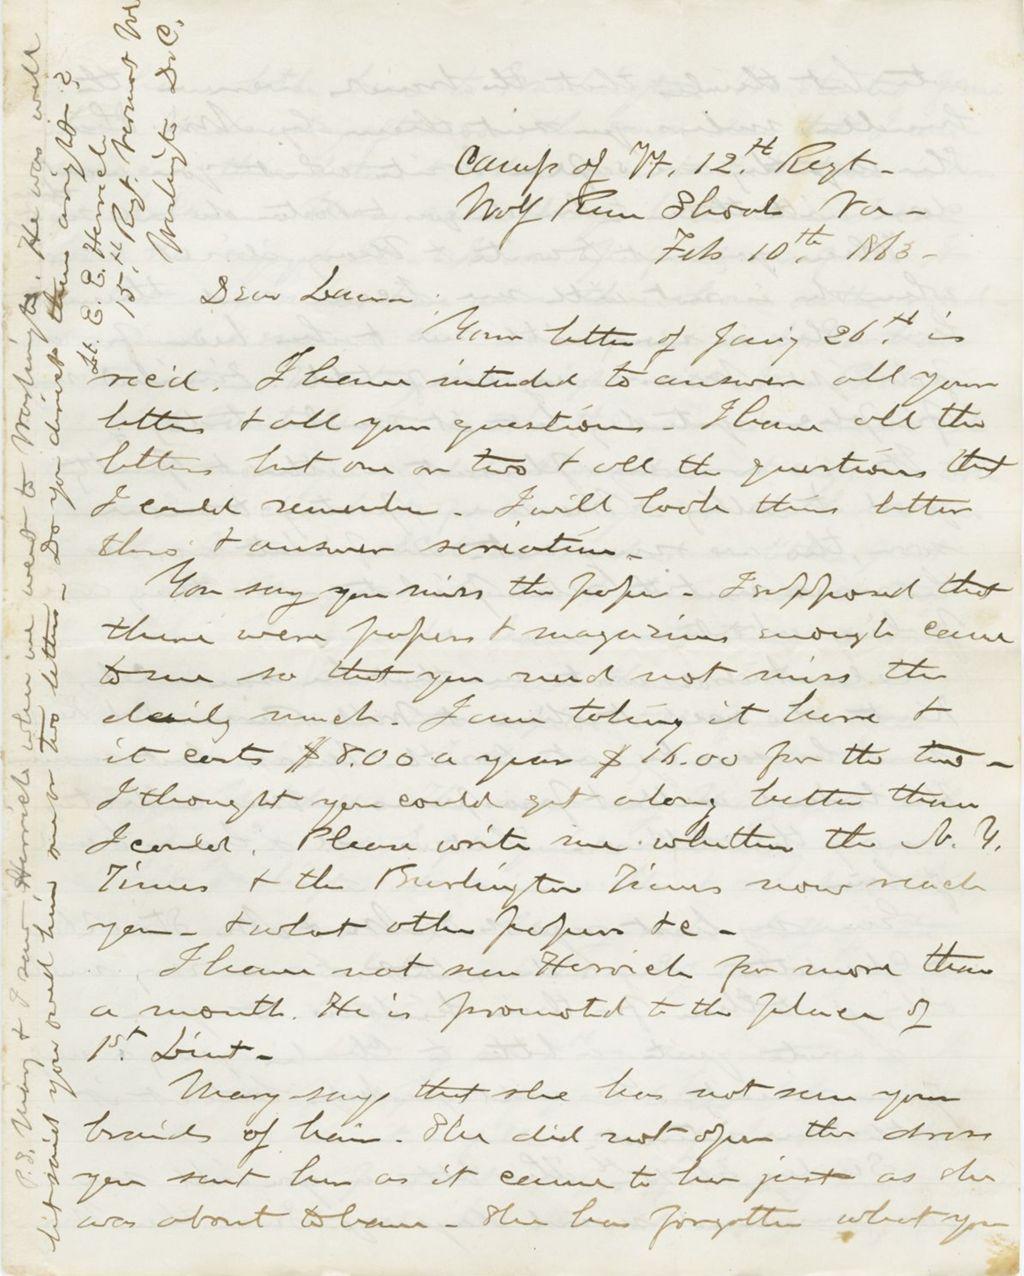 Camp of Vt. 12.th Regt -
Wolf Run Shoals Va -
Feb 10th 1863 -
Dear Laura
Your letter of Jan'y 26th is
rec'd. I have intended to answer all your
letters & all your questions - I have all the
letters but one or two & all the questions that
I could remember. I will look this letter
thro' & answer seriatim -
You say you miss the paper - I supposed that
there were papers & magazines enough came
to me so that you need not miss the
daily much. I am taking it here &
it costs $8.00 a year $16.00 for the two -
I thought you could get along better than
I could. Please write me whether the N. Y.
Times & the Burlington Times now reach
you - & what other papers &c -
I have not seen Herrick for more than
a month. He is promoted to the place of
1st. Lieut -
Mary says that she has not seen your
braids of hair. She did not open the dress
you sent her as it came to her just as she
was about to leave - She has forgotten what you
P.S. Mary & I saw Herrick when we went to Washington. He was well
but said you owed him one or two letters - Do you direct them aright?
Lt. E. E. Herrick
15th Regt. Vermont
Washington D.C.